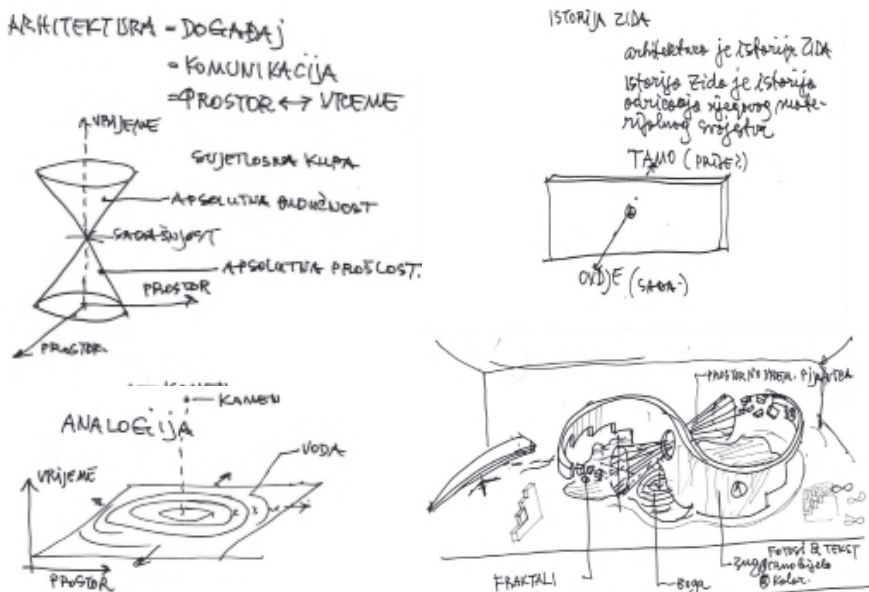 ARHITEKTURA = DOGAĐAJ
= KOMUNIKACIJA
= PROSTOR ↔ VREME
VRIJEME
SVJETLOSNA KUPA
APSOLUTNA BUDUĆNOST
SADAŠNJOST
APSOLUTNA PROŠLOST.
PROSTOR
PROSTOR
KAMEN
ANALOGIJA
VODA
VRIJEME
PROSTOR
ISTORIJA ZIDA
arhitektura je istorija ZIDA
Istorija Zida je istorija
odricanja njegovog mate-
rijalnog svojstva
TAMO
OVDJE (SADA)
FRAKTALI
FOTOSI & TEKST
crno bijelo
Kolor.